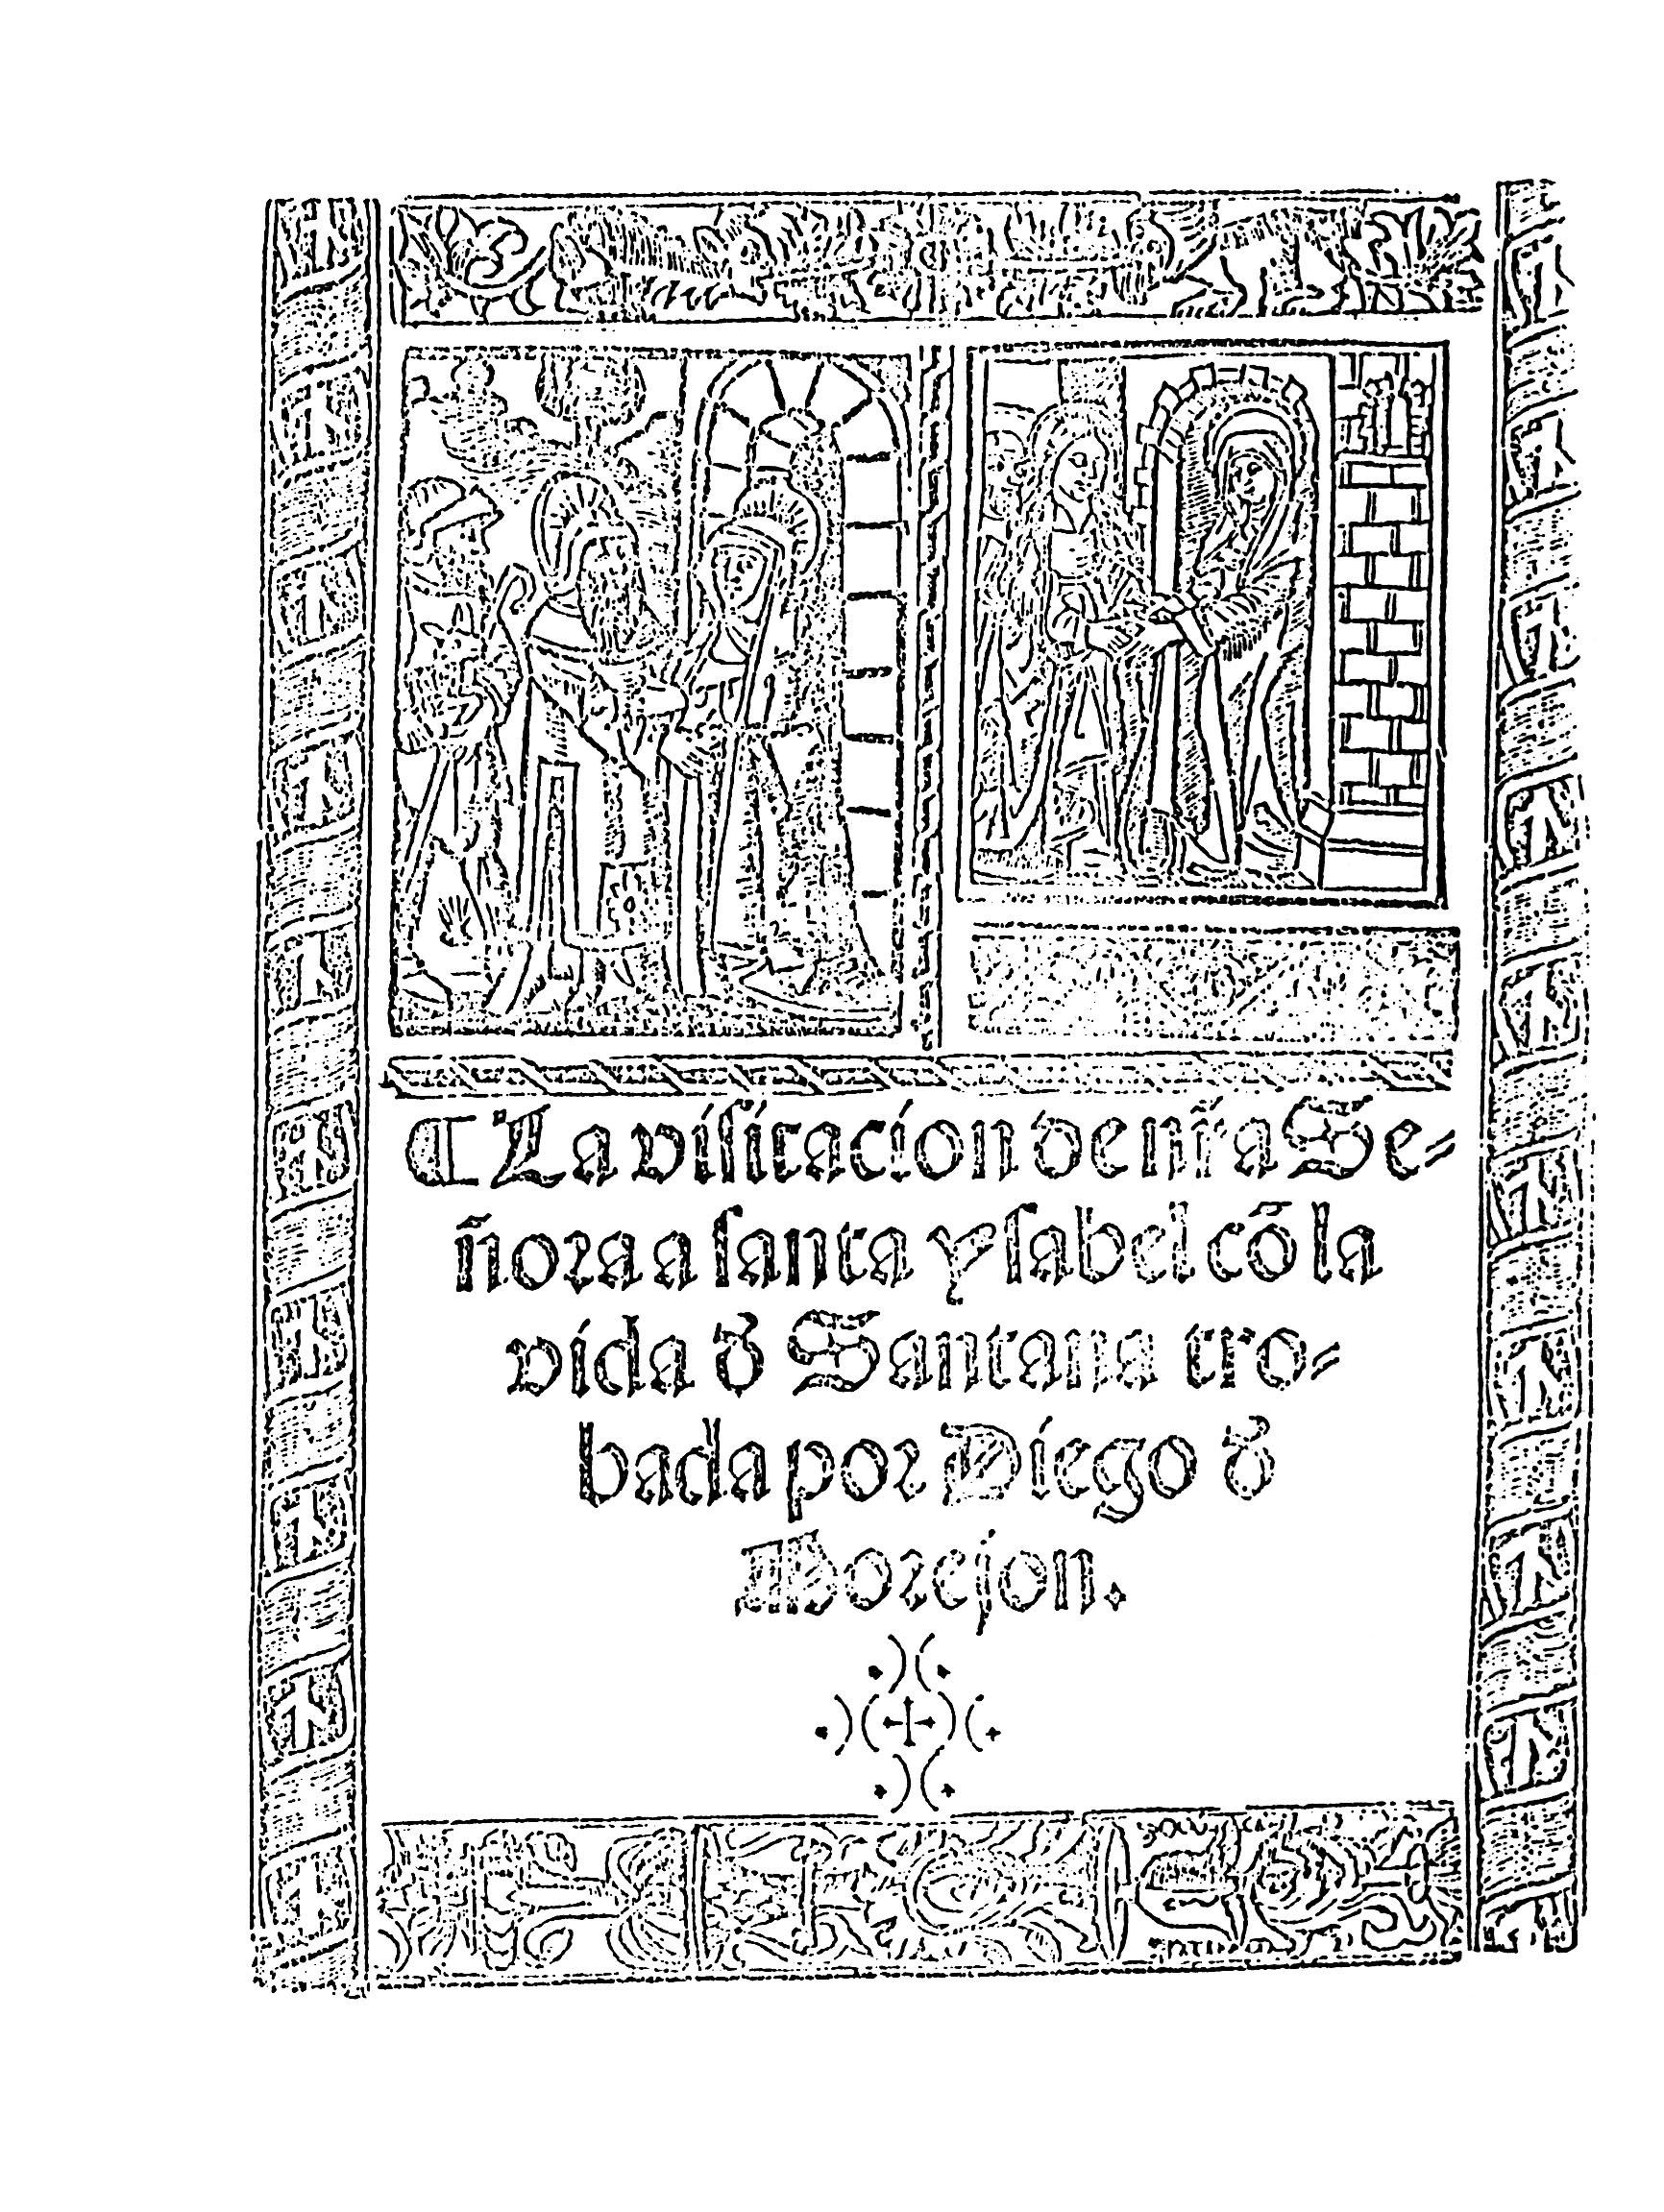 ¶ La visitacion de nr̃a Se-
ñora a santa Ysabel cõ la
vida d̉ Santana tro-
bada por Diego d̉
Morejon.